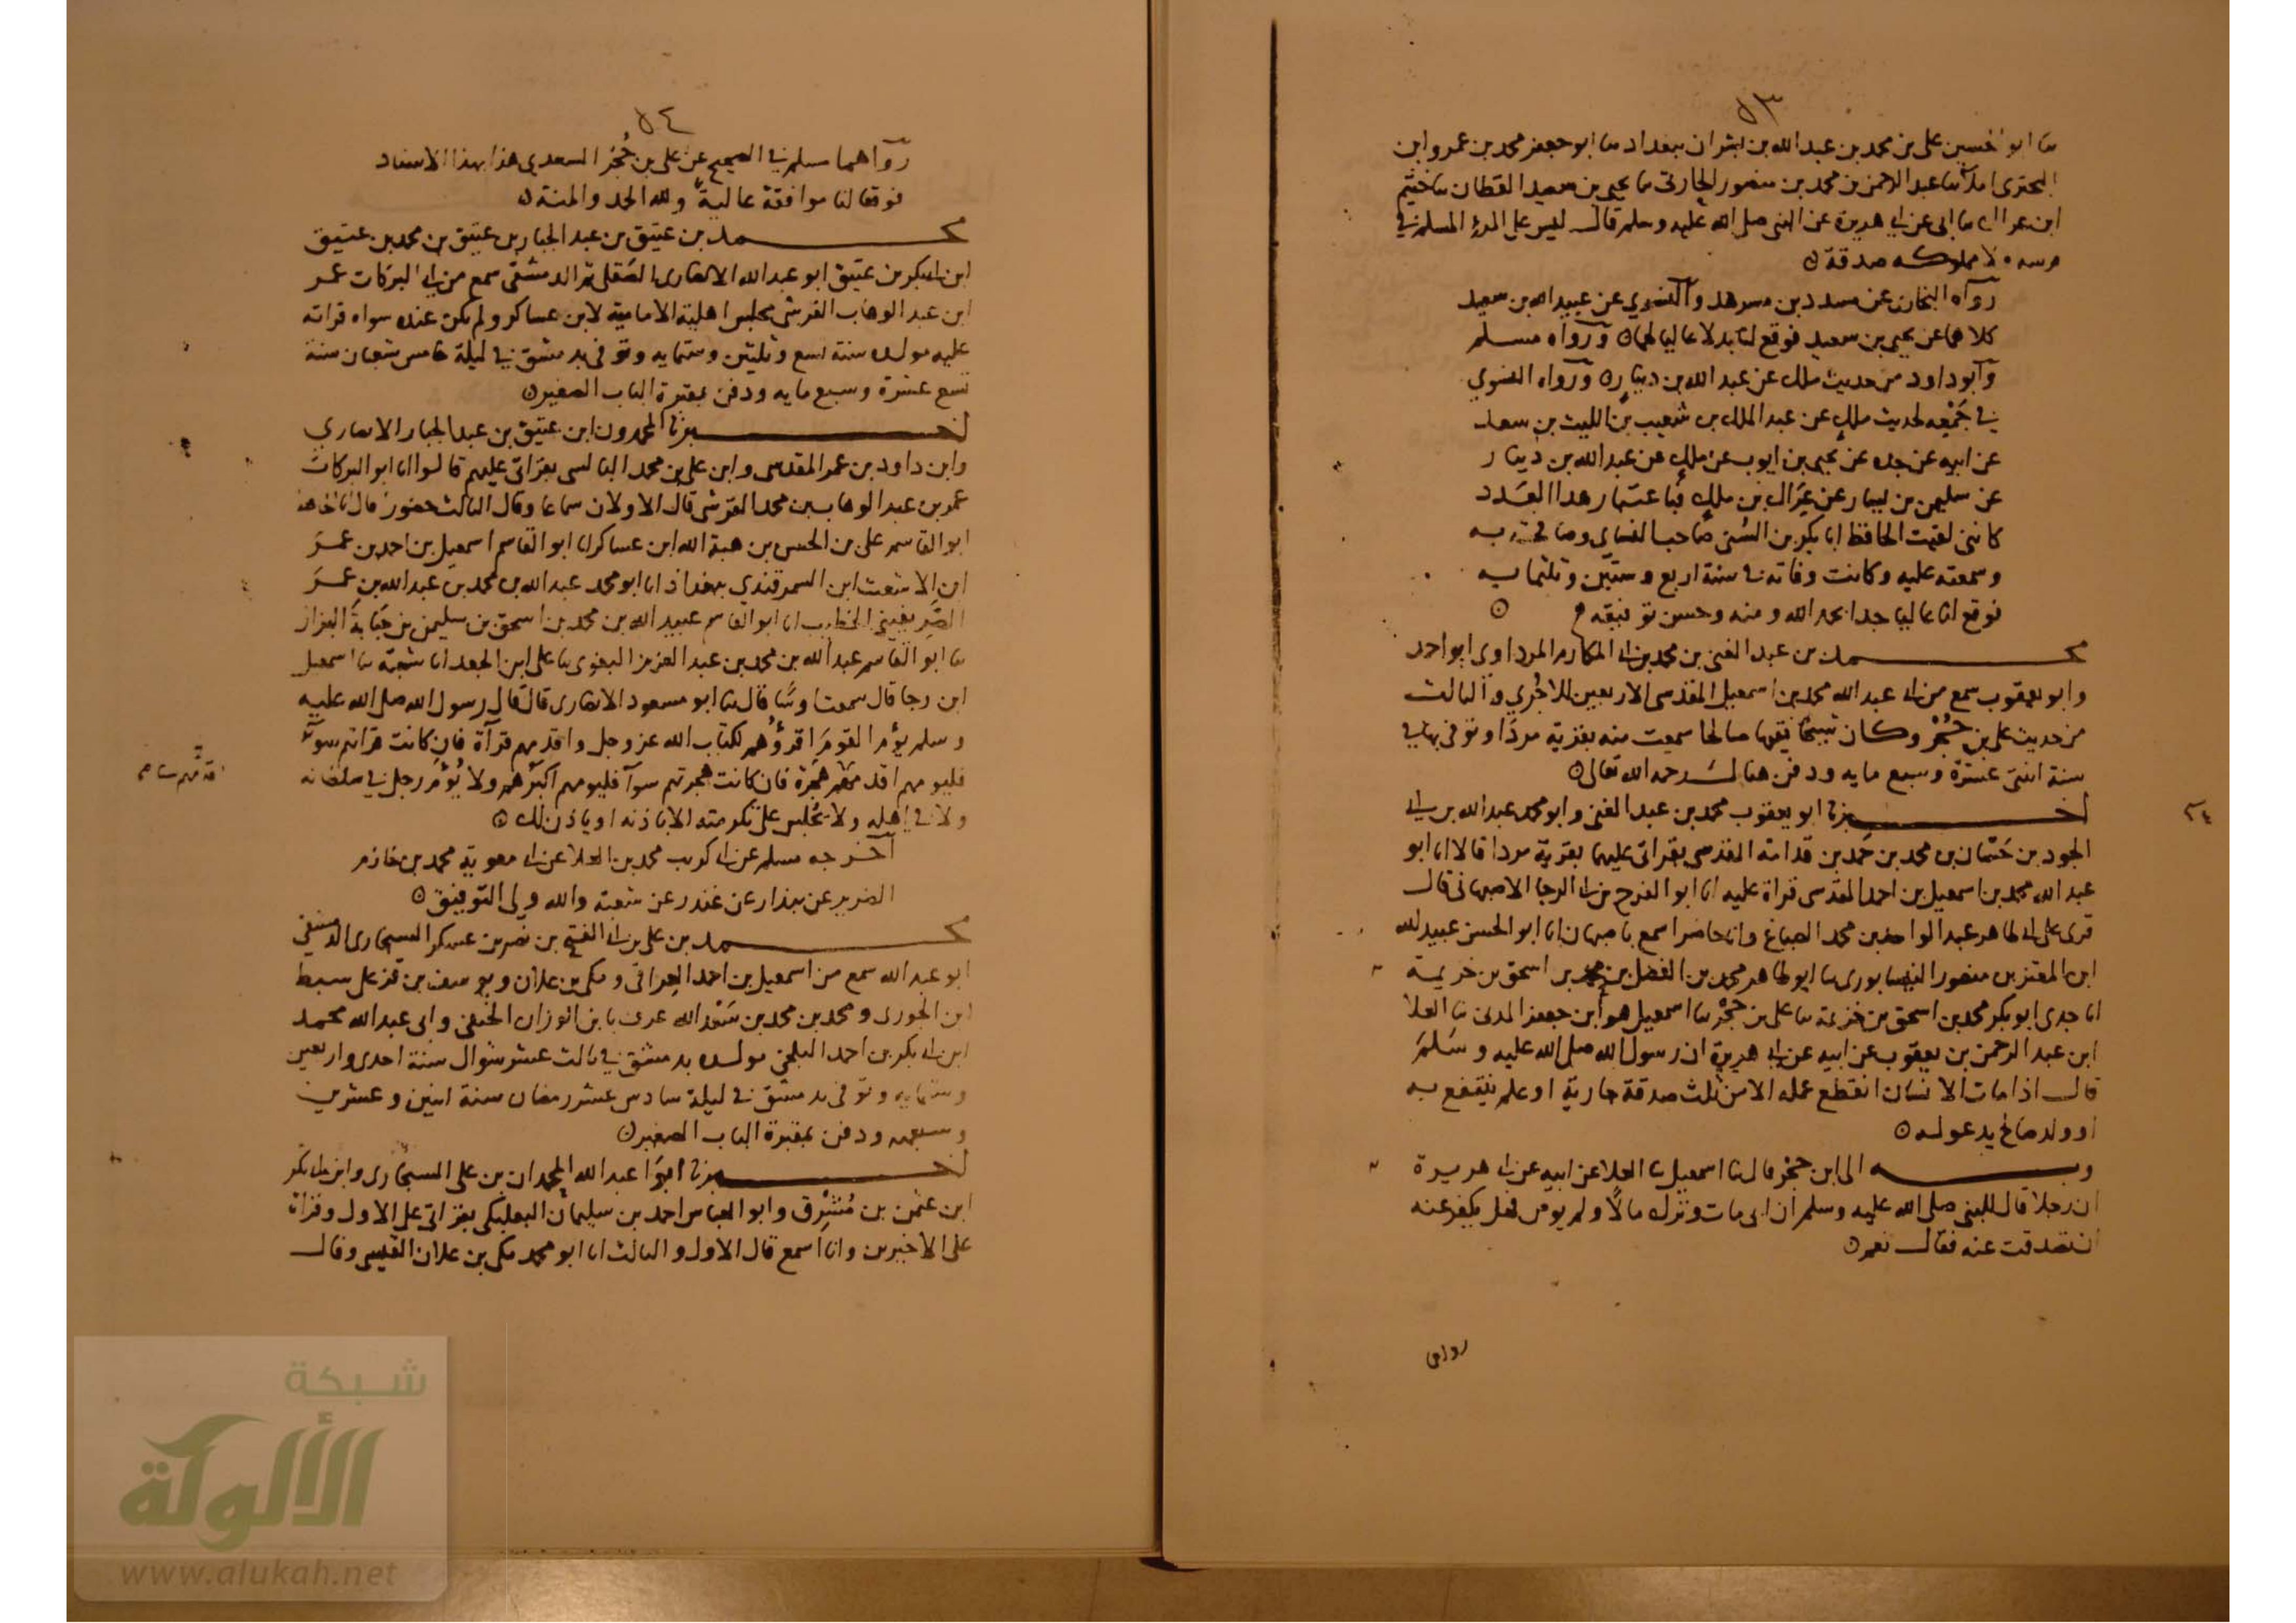 ٥٣
ثنا ابو الحسين على بن محمد بن عبد الله بن بشران ببغداد ثنا ابو جعفر محمد بن عمرو ابن
البخترى املا ثنا عبد الرحمن بن محمد بن منصور الحارثى ثنا يحيى بن سعيد القطان ثنا خثيم
ابن عراك ثنا ابى عن ابى هريرة عن النبى صلى الله عليه وسلم قال ليس على المرء المسلم فى
فرسه ولا مملوكه صدقة
رواه البخارى عن مسدد بن مسرهد والنسوي عن عبيد الله بن سعيد
كلاهما عن يحيى بن سعيد فوقع لنا بدلا عاليا لهما ورواه مسلم
وابو داود من حديث ملك عن عبد الله بن دينار ورواه النسوي
فى جمعه لحديث ملك عن عبد الملك بن شعيب بن الليث بن سعد
عن ابيه عن جده عن يحيى بن ايوب عن ملك عن عبد الله بن دينار
عن سليمن بن يسار عن عراك بن ملك فباعتبار هذا العدد
كاننى لقيت الحافظ ابا بكر بن السنى صاحب النساى وصافحته به
وسمعته عليه وكانت وفاته فى سنة اربع وستين وثلثمايه
فوقع لنا عاليا جدا بحمد الله ومنه وحسن توفيقه
محمد بن عبد الغنى بن محمد بن ابى المكارم المرداوى ابو احمد
وابو يعقوب سمع من ابى عبد الله محمد بن اسمعيل المقدسى الاربعين للاجري والثالث
من حديث على بن حجر وكان شيخا فقيها صالحا سمعت منه بقرية مردا وتوفى بها فى
سنة اثنتى عشرة وسبع مايه ودفن هنالك رحمه الله تعالى
اخبرنا ابو يعقوب محمد بن عبد الغنى وابو محمد عبد الله بن ابى
الجود بن خثمان بن محمد بن حمد بن قدامة المقدسى بقراتى عليهما بقرية مردا قالا انا ابو
عبد الله محمد بن اسمعيل بن احمد المقدسى قراة عليه انا ابو الفرج بن ابى الرجا الاصبهانى قال
قرى على ابى طاهر عبد الواحد بن محمد الصباغ وانا حاضر اسمع باصبهان انا ابو الحسن عبيد الله
ابن المعتز بن منصور النيسابورى ثنا ابو طاهر محمد بن الفضل بن محمد بن اسحق بن خزيمة
انا جدى ابو بكر محمد بن اسحق بن خزيمة ثنا على بن حجر ثنا اسمعيل هو ابن جعفر المدنى ثنا العلا
ابن عبد الرحمن بن يعقوب عن ابيه عن ابى هريرة ان رسول الله صلى الله عليه وسلم
قال اذا مات الانسان انقطع عمله الا من ثلث صدقة جارية او علم ينتفع به
او ولد صالح يدعو له
وبه الى ابن حجر قال ثنا اسمعيل ثنا العلا عن ابيه عن ابى هريرة
ان رجلا قال للنبى صلى الله عليه وسلم ان ابى مات وترك مالا ولم يوص فهل يكفر عنه
ان تصدقت عنه فقال نعم
رواهما
٥٤
رواهما مسلم فى الصحيح عن على بن حجر السعدى هذا بهذا الاسناد
فوقعا لنا موافقة عالية ولله الحمد والمنة
محمد بن عتيق بن عبد الجبار بن عتيق بن محمد بن عتيق
ابن ابى بكر بن عتيق ابو عبد الله الانصارى الصقلى ثم الدمشقى سمع من ابى البركات عمر
ابن عبد الوهاب القرشى مجلس اهلية الامامية لابن عساكر ولم يكن عنده سواه قراته
عليه مولده سنة تسع وثلثين وستمايه وتوفى بدمشق فى ليلة خامس شعبان سنة
تسع عشرة وسبع مايه ودفن بمقبرة الباب الصغير
اخبرنا المحمدون ابن عتيق بن عبد الجبار الانصاري
وابن داود بن عمر المقدسى وابن على بن محمد البالسى بقراتى عليهم قالوا انا ابو البركات
عمر بن عبد الوهاب بن محمد القرشى قال الاولان سماعا وقال الثالث حضورا قال انا الحافظ
ابو القاسم على بن الحسن بن هبة الله ابن عساكر انا ابو القاسم اسمعيل بن احمد بن عمر
ابن الاشعث ابن السمرقندي ببغداد انا ابو محمد عبد الله بن محمد بن عبد الله بن عمر
الصريفينى الخطيب انا ابو القاسم عبيد الله بن محمد بن اسحق بن سليمن بن حبابة البزاز
ثنا ابو القاسم عبد الله بن محمد بن عبد العزيز البغوى ثنا على ابن الجعد انا شعبة ثنا اسمعيل
ابن رجا قال سمعت اوسا قال ثنا ابو مسعود الانصارى قال قال رسول الله صلى الله عليه
وسلم يؤم القوم اقرؤهم لكتاب الله عز وجل واقدمهم قرآة فان كانت قراتهم سوآ
فليومهم اقدمهم هجرة فان كانت هجرتهم سوآ فليومهم اكبرهم ولا يؤم رجل فى سلطانه
ولا فى اهله ولا يجلس على تكرمته الا باذنه او ياذن لك
اخرجه مسلم عن ابى كريب محمد بن العلا عن ابى معوية محمد بن خازم
الضرير عن بندار عن غندر عن شعبة والله ولى التوفيق
محمد بن على بن ابى الفتح بن نصر بن عسكر السنجارى الدمشقى
ابو عبد الله سمع من اسمعيل بن احمد العراقى ومكى بن علان ويوسف بن قزعلى سبط
ابن الجوزى ومحمد بن محمد بن سعد الله عرف بابن الوزان الحنفى وابى عبد الله محمد
ابن ابى بكر بن احمد البلخى مولده بدمشق فى ثالث عشر شوال سنة احدى واربعين
وستمايه وتوفى بدمشق فى ليلة سادس عشر رمضان سنة اثنين وعشرين
وسبعمايه ودفن بمقبرة الباب الصغير
اخبرنا ابوا عبد الله المحمدان بن على السنجارى وابن ابى بكر
ابن عثمن بن مشرق وابو العباس احمد بن سليمان البعلبكى بقراتى على الاول وقراة
على الاخيرين وانا اسمع قال الاول والثالث انا ابو محمد مكى بن علان القيسى وقال
شبكة
الألوكة
www.alukah.net